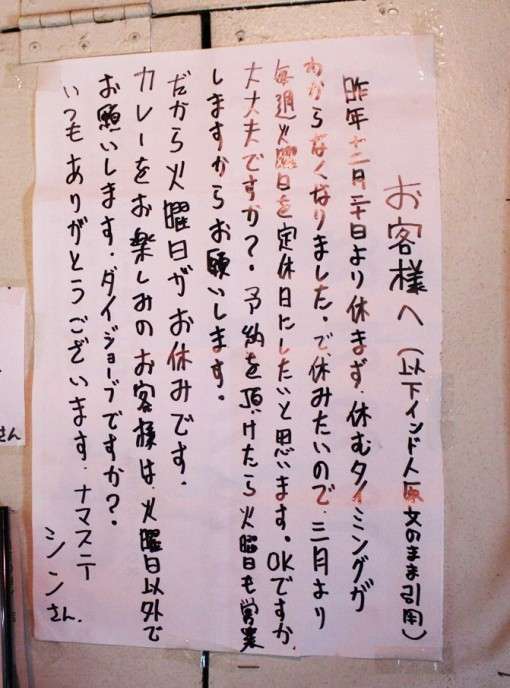 お客様へ(以下インド人原文のまま引用)
昨年十二月二十日より休まず、休むタイミングが
わからなくなりました。で、休みたいので、三月より
毎週火曜日を定休日にしたいと思います。OKですか、
大丈夫ですか?・予約を頂けたら火曜日も営業
しますからお願いします。
だから火曜日がお休みです.
カレーをお楽しみのお客様は、火曜日以外で
お願いします.ダイジョーブですか?
いつもありがとうございます.ナマステー
シンさん.
さん